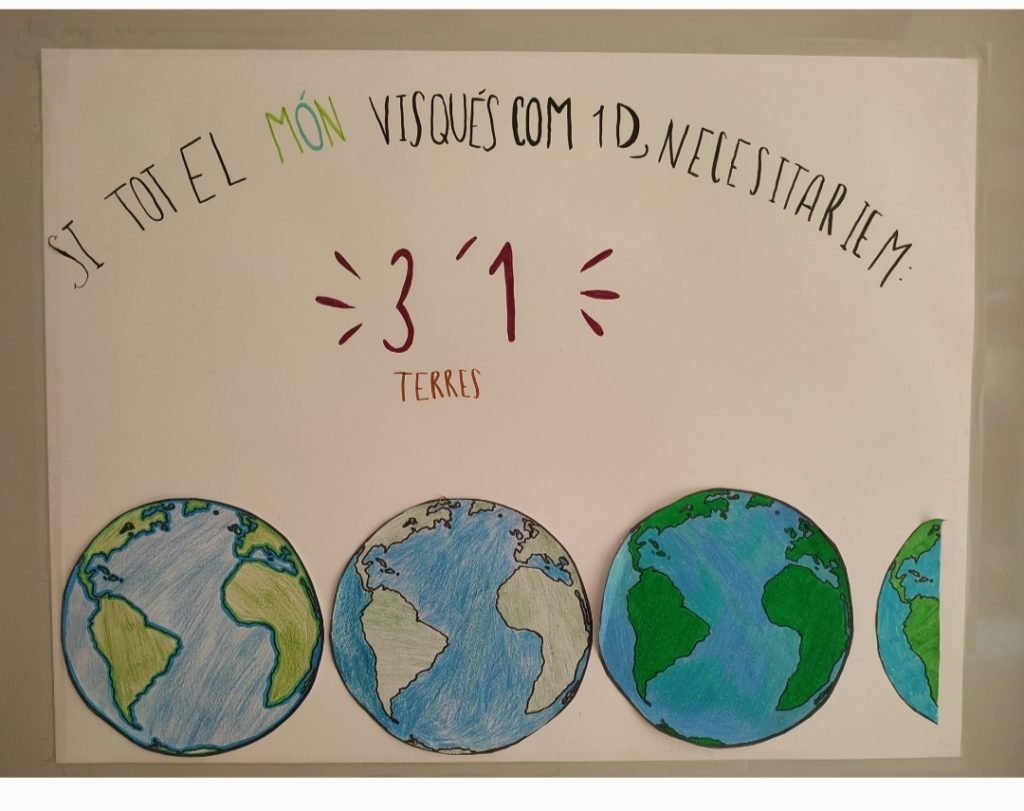 SI TOT EL MÓN VISQUÉS COM 1D, NECESITARIEM:
3´1
TERRES